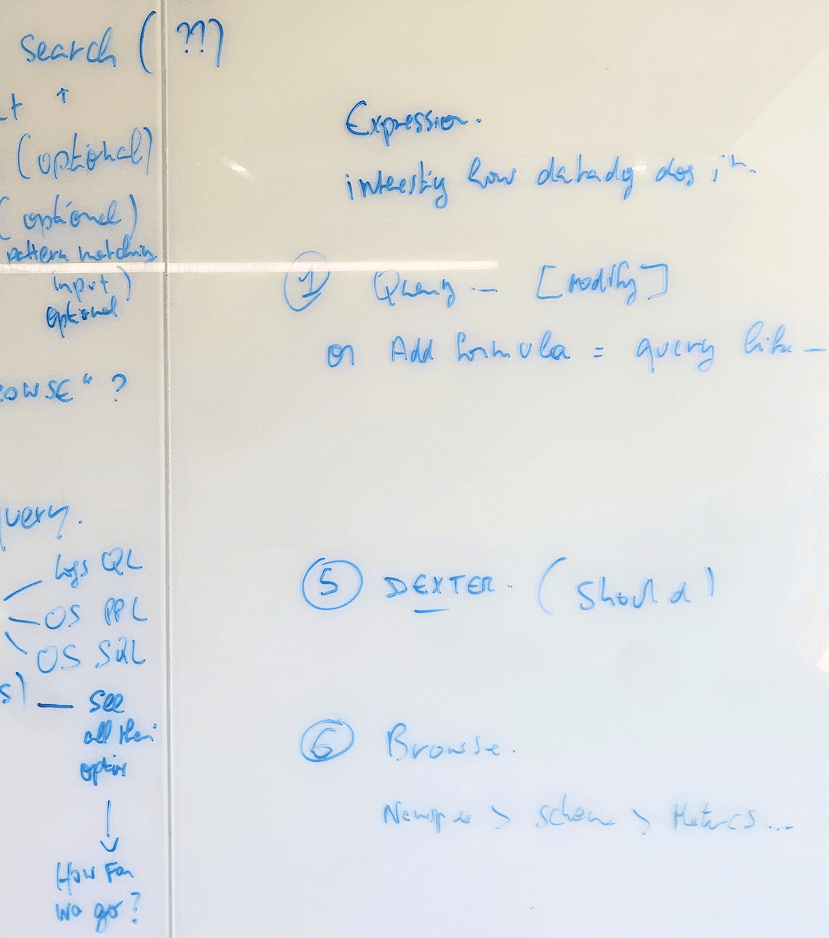 Search (???)
↑
(optional)
(optional)
pattern matching
input)
optional
OWSE" ?
uery.
Logs QL
OS PPL
OS SQL
s) — see
all their
option
↓
How Far
we go?
Expression.
interesting how datadog does it.
① Query — [modify]
or Add formula = query like —
⑤ DEXTER. (Should)
⑥ Browse.
> Schema > Metrics...